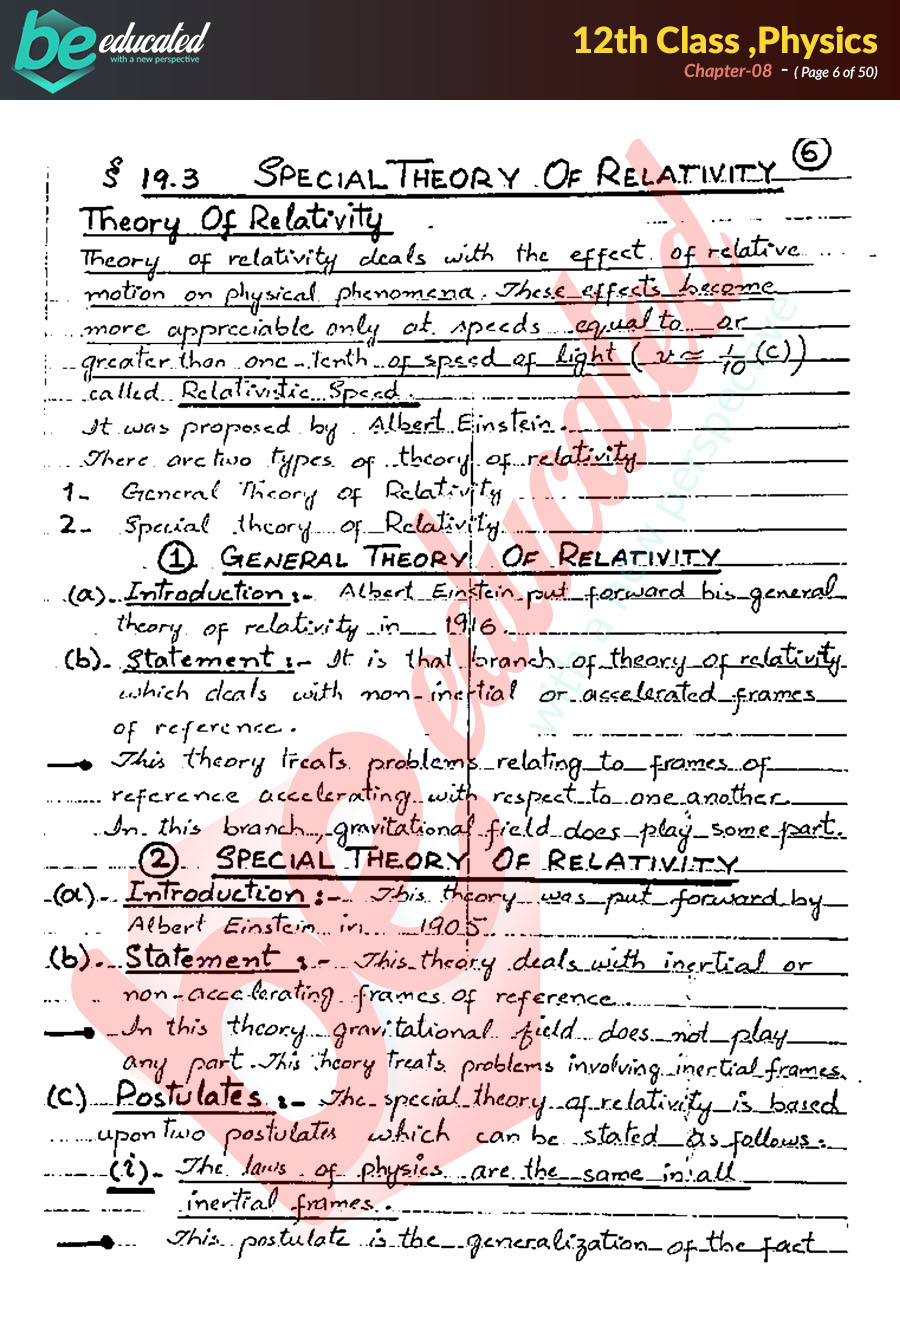 be educated
with a new perspective
12th Class ,Physics
Chapter-08 - ( Page 6 of 50)
6
§ 19.3 SPECIAL THEORY OF RELATIVITY
Theory Of Relativity
Theory of relativity deals with the effect of relative
motion on physical phenomena. These effects become
more appreciable only at speeds equal to or
greater than one-tenth of speed of light ( v ≃ 1/10 (c))
called Relativistic Speed.
It was proposed by Albert Einstein.
There are two types of theory of relativity
1- General Theory of Relativity
2- Special theory of Relativity.
1 GENERAL THEORY OF RELATIVITY
(a)- Introduction:- Albert Einstein put forward his general
theory of relativity in 1916.
(b)- Statement:- It is that branch of theory of relativity
which deals with non-inertial or accelerated frames
of reference.
This theory treats problems relating to frames of
reference accelerating with respect to one another.
In this branch, gravitational field does play some part.
2 SPECIAL THEORY OF RELATIVITY
(a)- Introduction:- This theory was put forward by
Albert Einstein in 1905.
(b)- Statement:- This theory deals with inertial or
non-accelerating frames of reference.
In this theory gravitational field does not play
any part. This theory treats problems involving inertial frames.
(c) Postulates:- The special theory of relativity is based
upon two postulates which can be stated as follows:
(i)- The laws of physics are the same in all
inertial frames.
This postulate is the generalization of the fact
be educated
with a new perspective